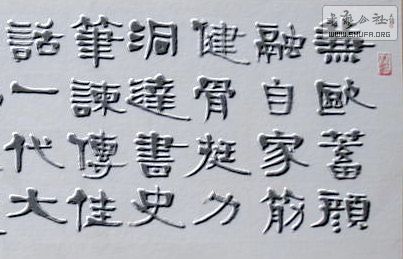 兼歐蓄顔
融自家筋
健骨挺力
洞達書史
筆諫傳佳
話一代大
書法公社
WWW.SHUFA.ORG